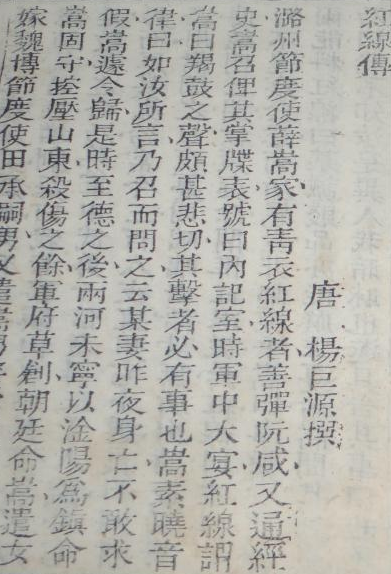 紅線傳
唐 楊巨源撰
潞州節度使薛嵩家有青衣紅線者善彈阮咸又通經
史嵩召俾其掌牋表號曰內記室時軍中大宴紅線謂
嵩曰羯鼓之聲頗甚悲切其擊者必有事也嵩素曉音
律曰如汝所言乃召而問之云某妻昨夜身亡不敢求
假嵩遽令歸是時至德之後兩河未寧以淦陽爲鎮命
嵩固守控壓山東殺傷之餘軍府草創朝廷命嵩遣女
嫁魏博節度使田承嗣男又遣嵩男